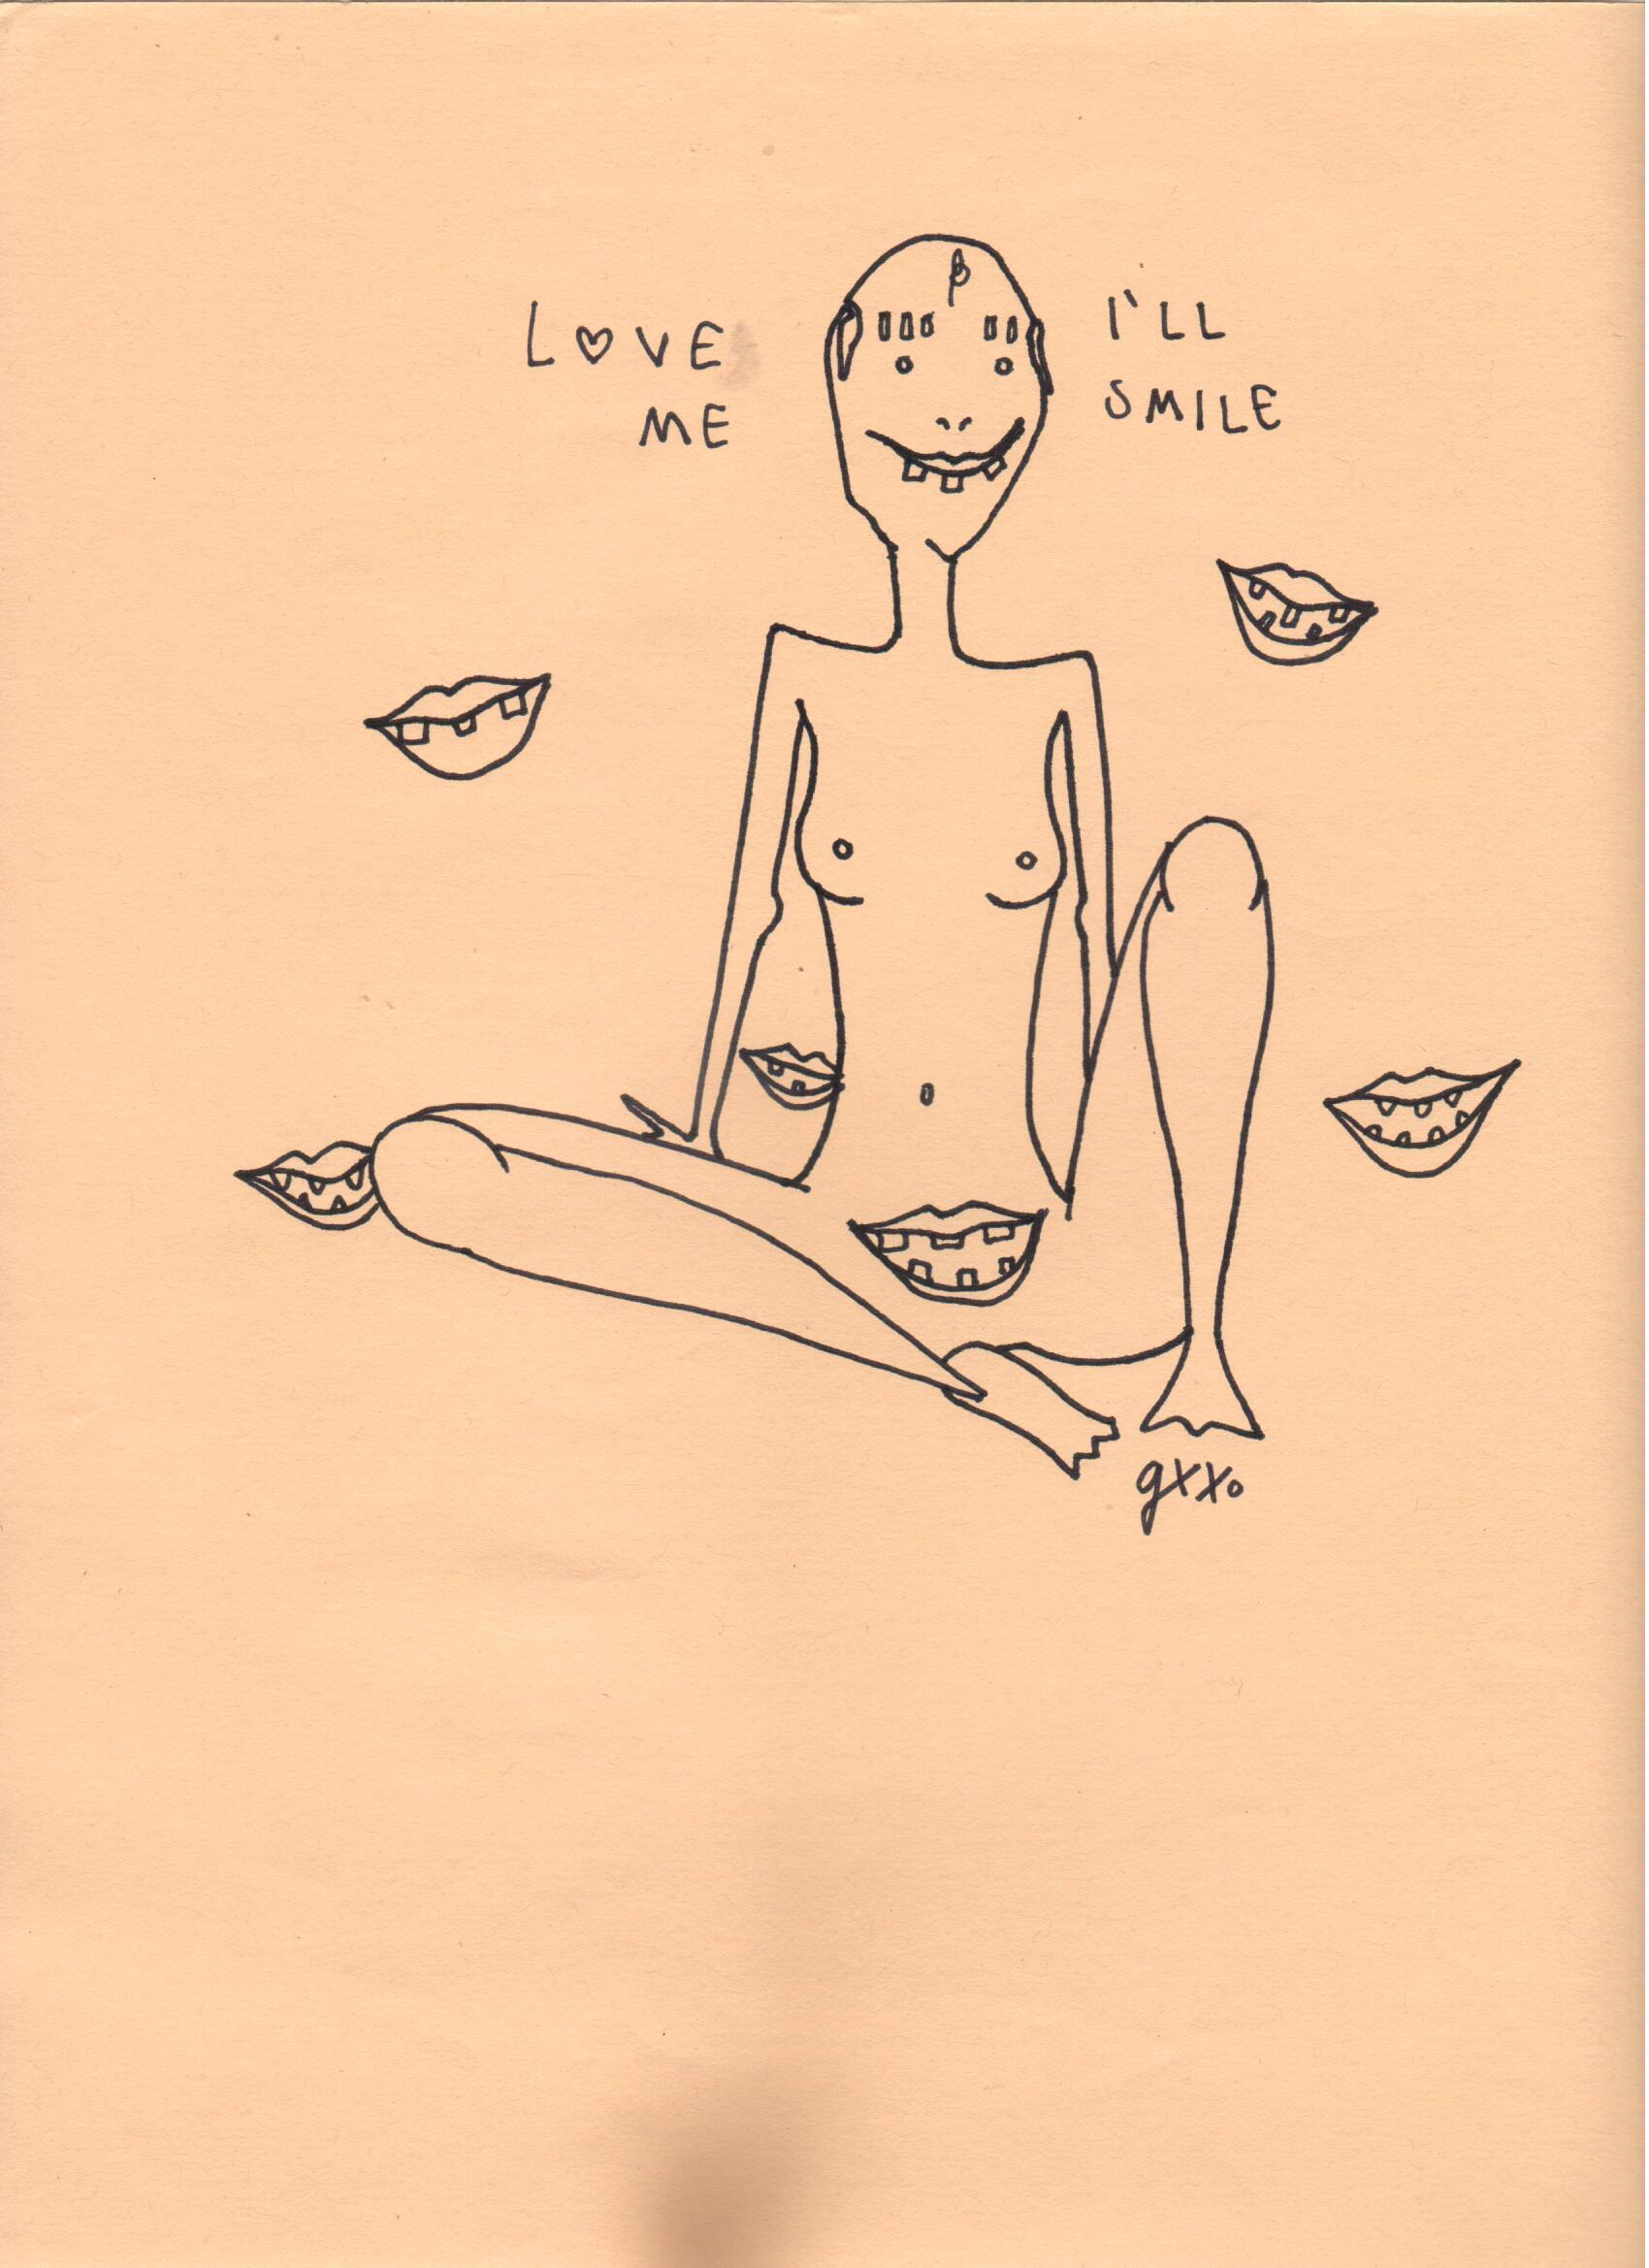 L♡VE
ME
I'LL
SMILE
gxxo